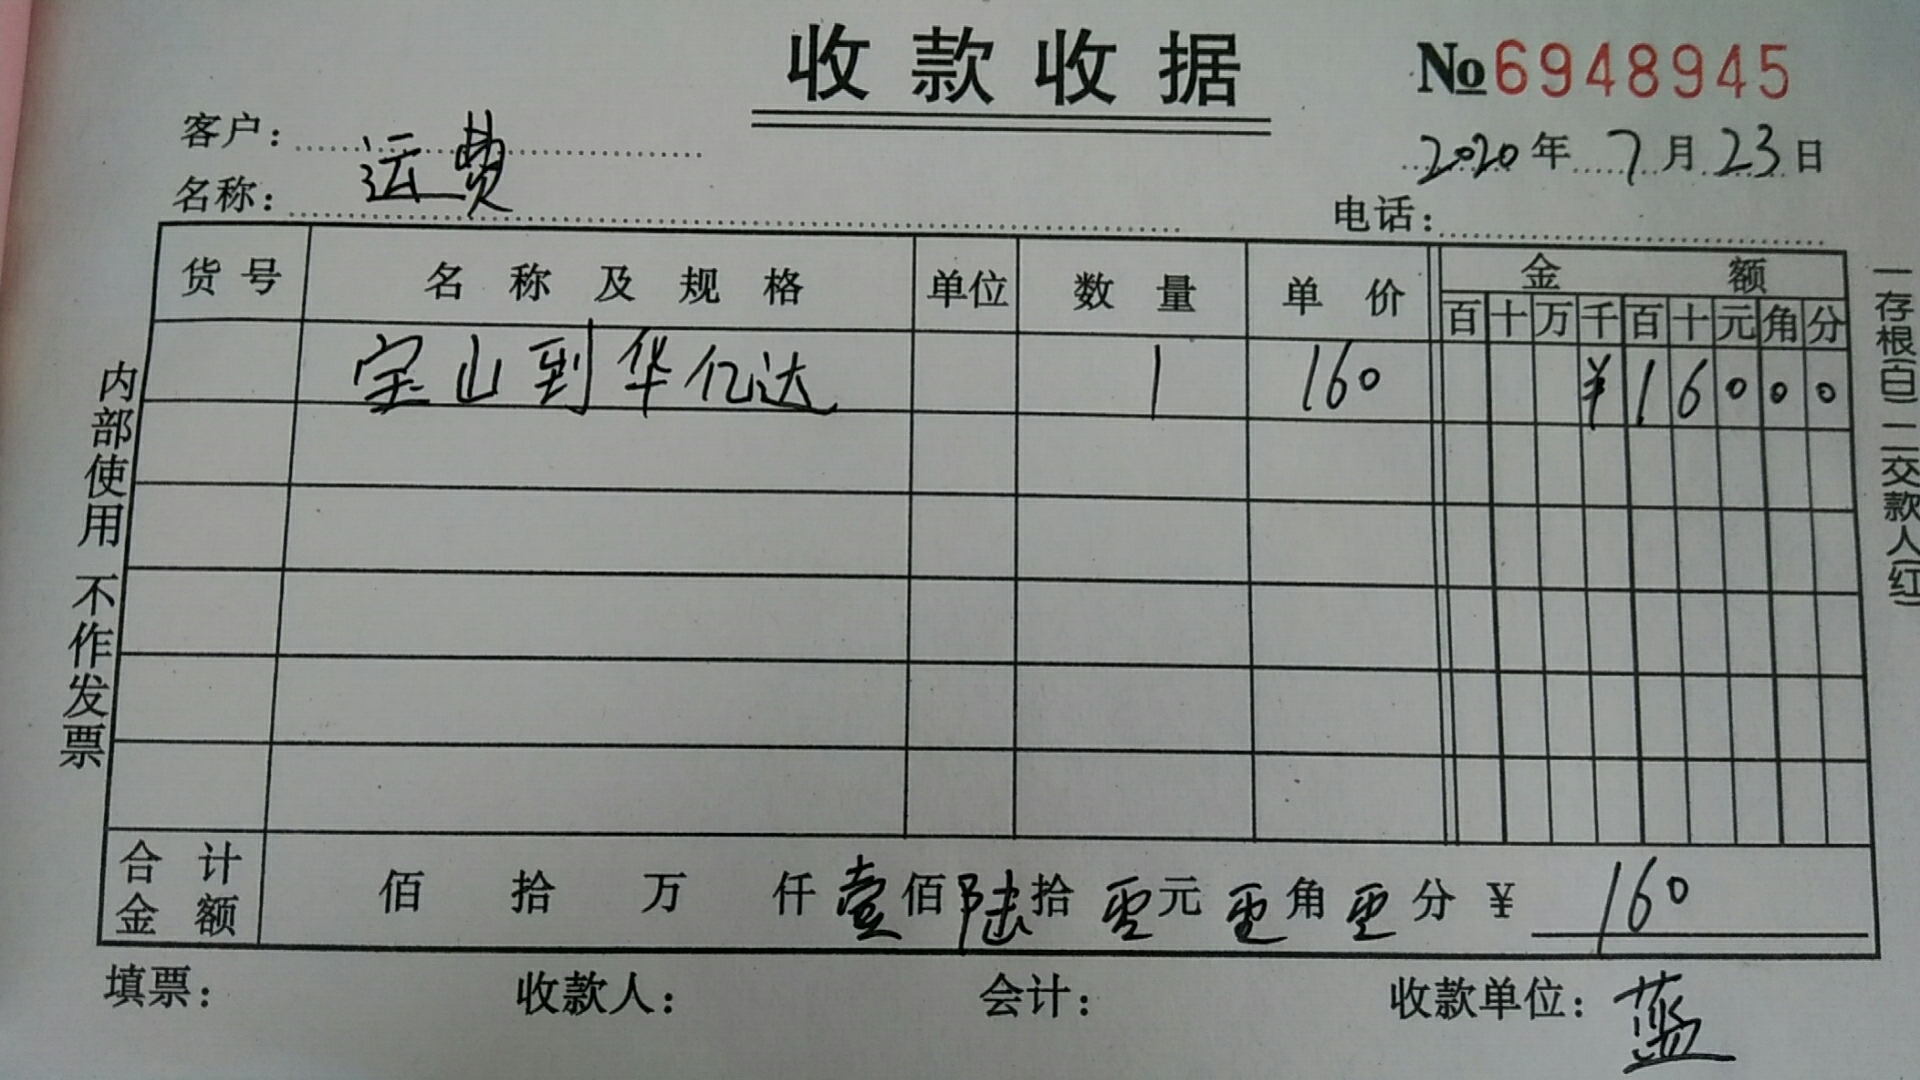 收款收据
No 6948945
客户：
2020年7月23日
名称：运费
电话：
货号 名称及规格 单位 数量 单价 金额
百 十 万 千 百 十 元 角 分
宝山到华亿达 1 160 ¥ 1 6 0 0 0
合计金额 佰 拾 万 仟 壹 佰 陆 拾 零 元 零 角 零 分 ¥ 160
填票： 收款人： 会计： 收款单位：蓝
内部使用 不作发票
一存根(白) 二交款人(红)